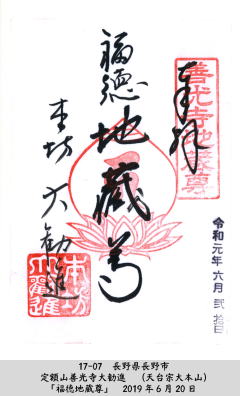 奉拝
善光寺地蔵尊
福徳
地蔵尊
本坊 大勧進
令和元年六月弐拾日
本坊
大勧進
17-07 長野県長野市
定額山善光寺大勧進 (天台宗大本山)
「福徳地蔵尊」 2019年6月20日